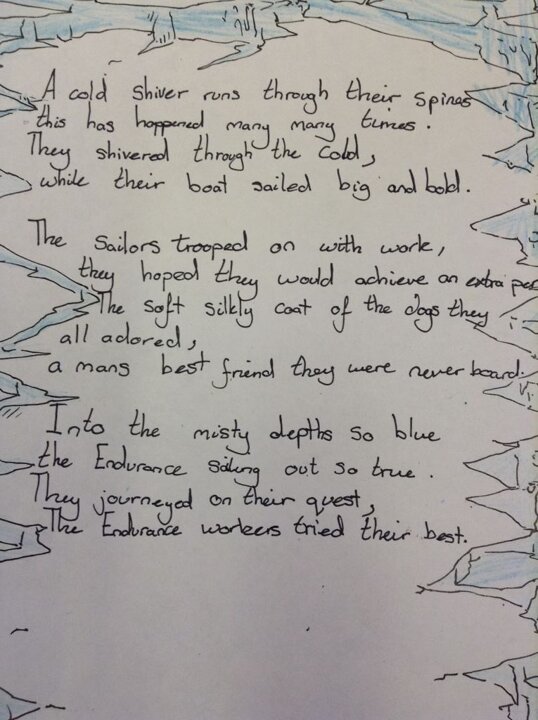 A cold shiver runs through their spines
this has happened many many times.
They shivered through the cold,
while their boat sailed big and bold.
The sailors trooped on with work,
they hoped they would achieve an extra
The soft silkly coat of the dogs they
all adored,
a mans best friend they were never board.
Into the misty depths so blue
the Endurance sailing out so true.
They journeyed on their quest,
The Endurance workers tried their best.